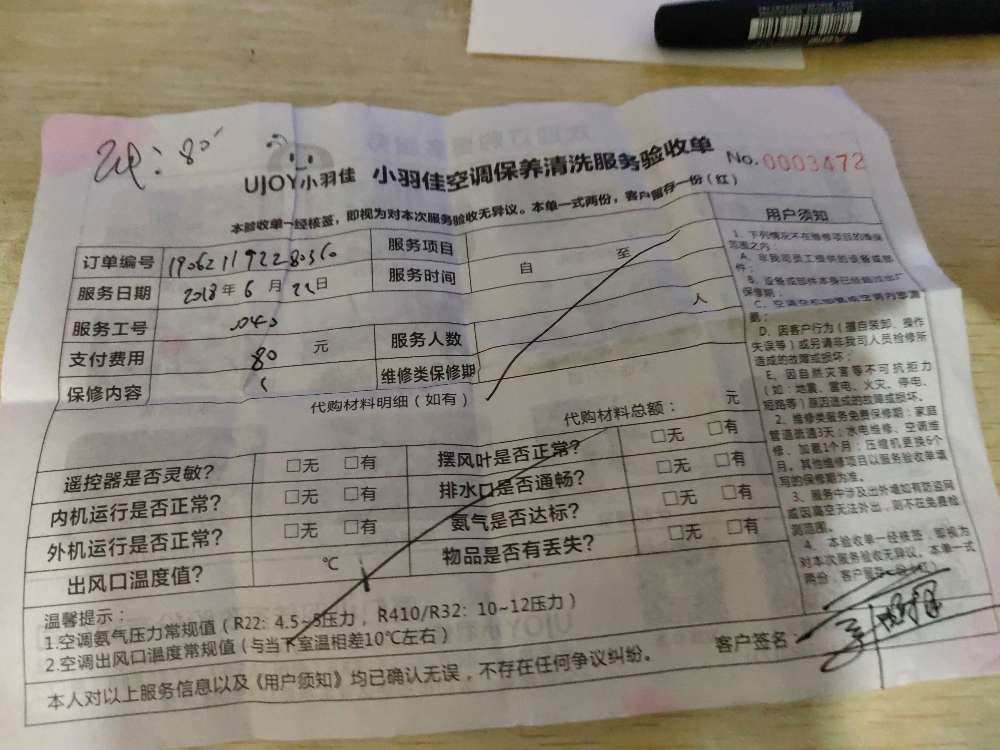 80
UJOY小羽佳 小羽佳空调保养清洗服务验收单 No.0003472
本验收单一经核签，即视为对本次服务验收无异议。本单一式两份，客户留存一份（红）
订单编号 服务项目
服务日期 2018年6月22日 服务时间 自 至
服务工号 040 服务人数 人
支付费用 80 元 维修类保修期
保修内容
代购材料明细（如有） 代购材料总额： 元
遥控器是否灵敏？ □无 □有 摆风叶是否正常？ □无 □有
内机运行是否正常？ □无 □有 排水口是否通畅？ □无 □有
外机运行是否正常？ □无 □有 氨气是否达标？ □无 □有
出风口温度值？ ℃ 物品是否有丢失？ □无 □有
温馨提示：
1.空调氨气压力常规值（R22：4.5~5压力，R410/R32：10~12压力）
2.空调出风口温度常规值（与当下室温相差10℃左右）
客户签名：
本人对以上服务信息以及《用户须知》均已确认无误，不存在任何争议纠纷。
用户须知
1、下列情况不在维修项目的维保
范围之内：
A、非我司员工提供的设备或部
件；
B、设备或部件本身已经超过出厂
保修期；
D、因客户行为（擅自装卸、操作
失误等）或另请非我司人员检修所
造成的故障或损坏；
E、因自然灾害等不可抗拒力
（如：地震、雷电、火灾、停电、
短路等）原因造成的故障或损坏。
2、维修类服务免费保修期：家庭
管道疏通3天；水电维修、空调维
修、加氨1个月；压缩机更换6个
月。其他维修项目以服务验收单填
写的保修期为准。
3、服务中涉及出外墙如有防盗网
或因高空无法外出，则不在免费检
测范围。
4、本验收单一经核签，即视为
对本次服务验收无异议。本单一式
两份，客户留存一份（红）